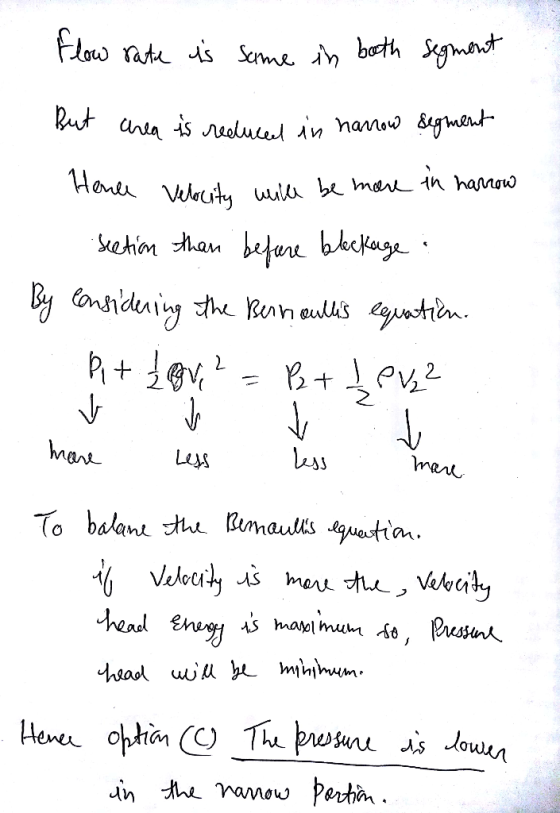 Flow rate is same in both segment
But area is reduced in narrow segment
Hence velocity will be more in narrow
section than before blockage.
By considering the Bernoulli's equation.
P₁ + 1/2 ρv₁² = P₂ + 1/2 ρv₂²
↓ ↓ ↓ ↓
more Less Less more
To balance the Bernoulli's equation.
if Velocity is more the, Velocity
head Energy is maximum so, Pressure
head will be minimum.
Hence option (C) The pressure is lower
in the narrow portion.